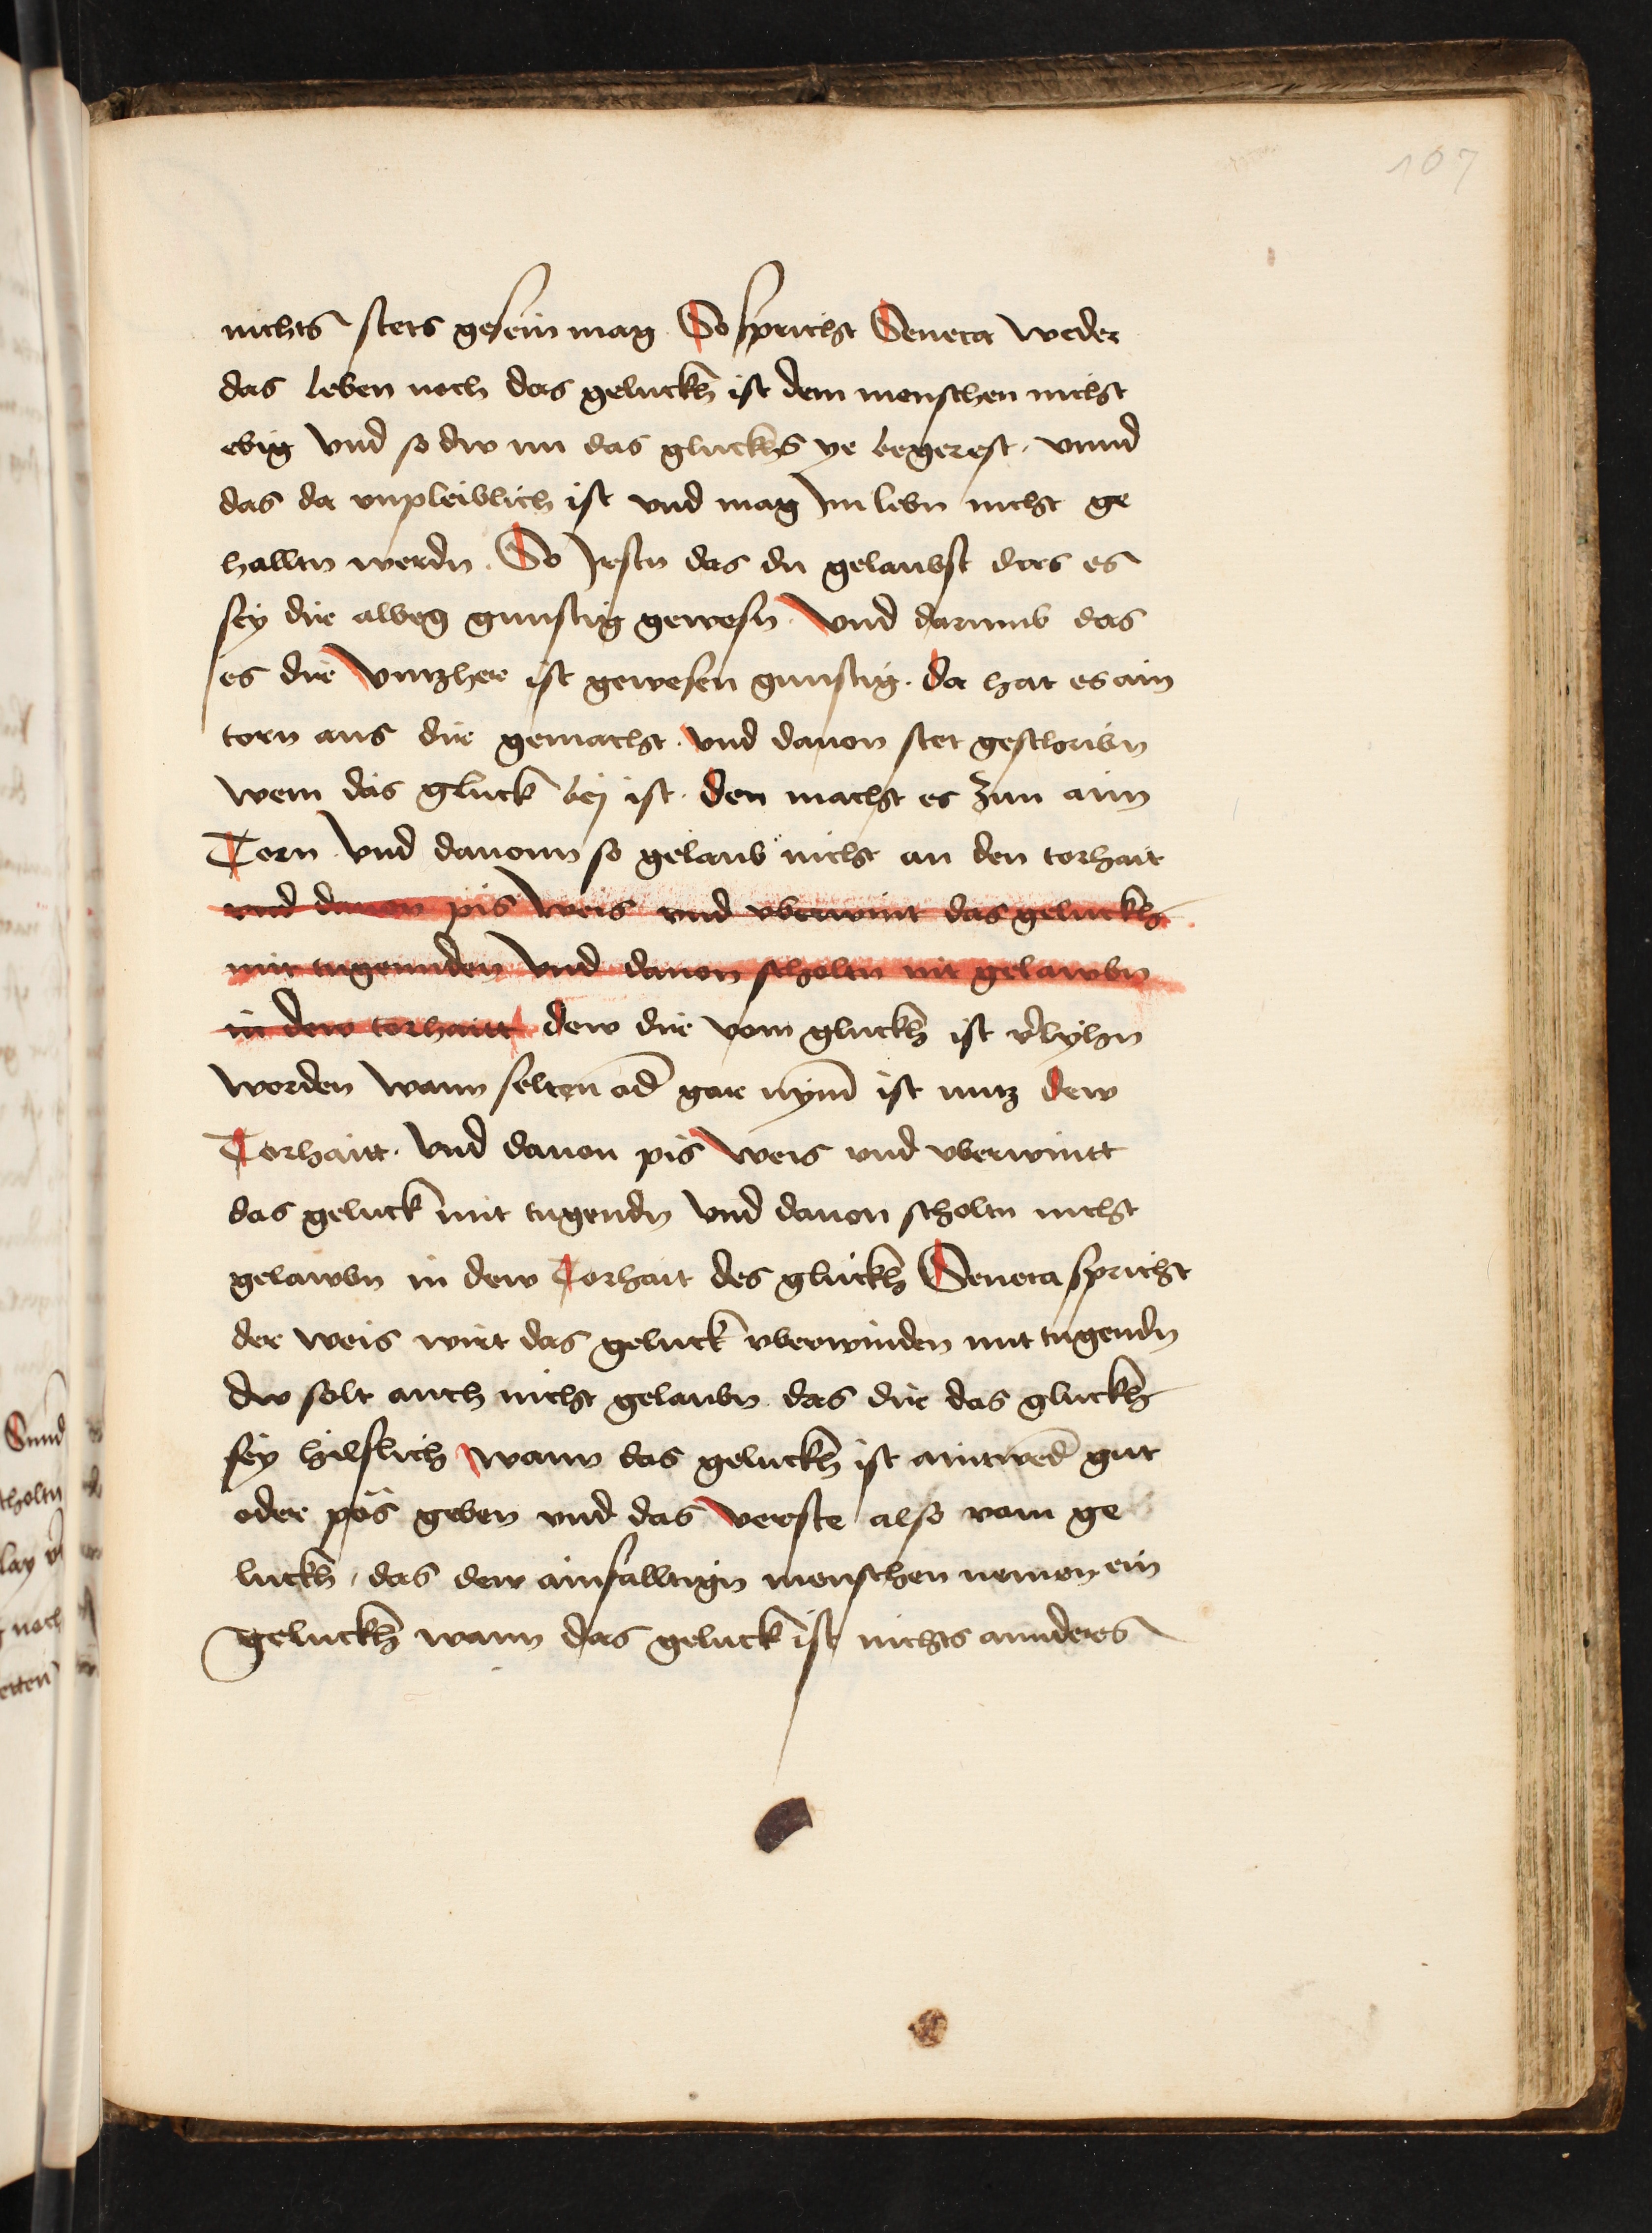 107
nichts stets gesein mag So spricht Seneca weder
das leben noch das geluckh ist dem menschen nicht
ebig vnd so dw nu das gluckhs ye begerest · vnnd
das da vnpleiblich ist vnd mag Im lebn nicht ge
halltn werdn · So Jrstu das du gelaubst das es
sey dir albeg gunstig gewesn · vnd darumb das
es dir vntzher ist gewesen gunstig · da hat es ain
torn aus dir gemacht · vnd dauon stet geschribn
wem das gluck bej ist · den macht es zun ainn
Torn · vnd dauonn so gelaub nicht an den torhait
vnd dauon pis weis vnd vberwint das geluckh
mit tugennden vnd dauon scholtu nit gelawbn
in dew torhaitt dew dir vom gluckh ist v̾lyhn
worden wann selten od̾ gar nym̄ ist nutz dew
Torhaitt · vnd dauon pis weis vnd vberwintt
das geluck mit tugendn vnd dauon scholtu nicht
gelawbn in dew Torhait des gluckh Seneca spricht
der weis wirt das geluck vberwinden mit tugendn
dw solt auch nicht gelaubn das dir das gluckh
sey hilflich wann das geluckh ist aintwed̾ gut
oder pös geben vnd das verste also vom ge
luckh · das dew ainfalltign menschen nemen ein
geluckh wann das geluck ist nichts annderes
Sunnd
scholtu
noch
etten